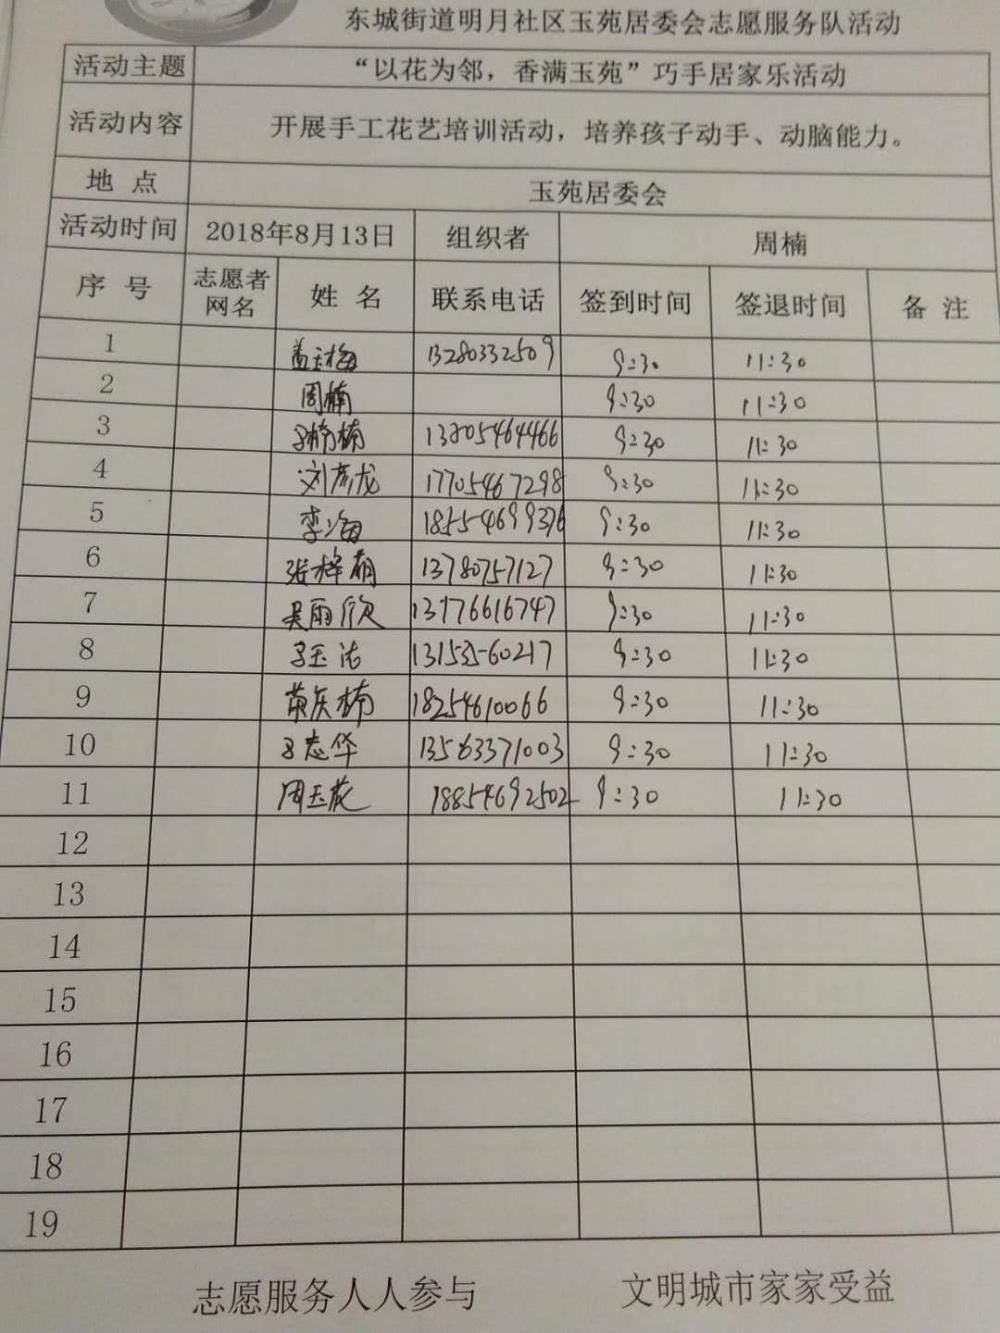 东城街道明月社区玉苑居委会志愿服务队活动
活动主题 “以花为邻，香满玉苑”巧手居家乐活动
活动内容 开展手工花艺培训活动，培养孩子动手、动脑能力。
地 点 玉苑居委会
活动时间 2018年8月13日 组织者 周楠
序 号 志愿者网名 姓 名 联系电话 签到时间 签退时间 备 注
1 盖玉梅 13280332509 9:30 11:30
2 周楠 9:30 11:30
3 楠楠 13805464466 9:30 11:30
4 刘彦龙 17705467298 9:30 11:30
5 李海 18554699376 9:30 11:30
6 张梓萌 13780757127 9:30 11:30
7 吴雨欣 13976616747 9:30 11:30
8 玉洁 13153560217 9:30 11:30
9 黄庆楠 18254610066 9:30 11:30
10 志华 13563371003 9:30 11:30
11 周玉花 18854692502 9:30 11:30
12
13
14
15
16
17
18
19
志愿服务人人参与 文明城市家家受益